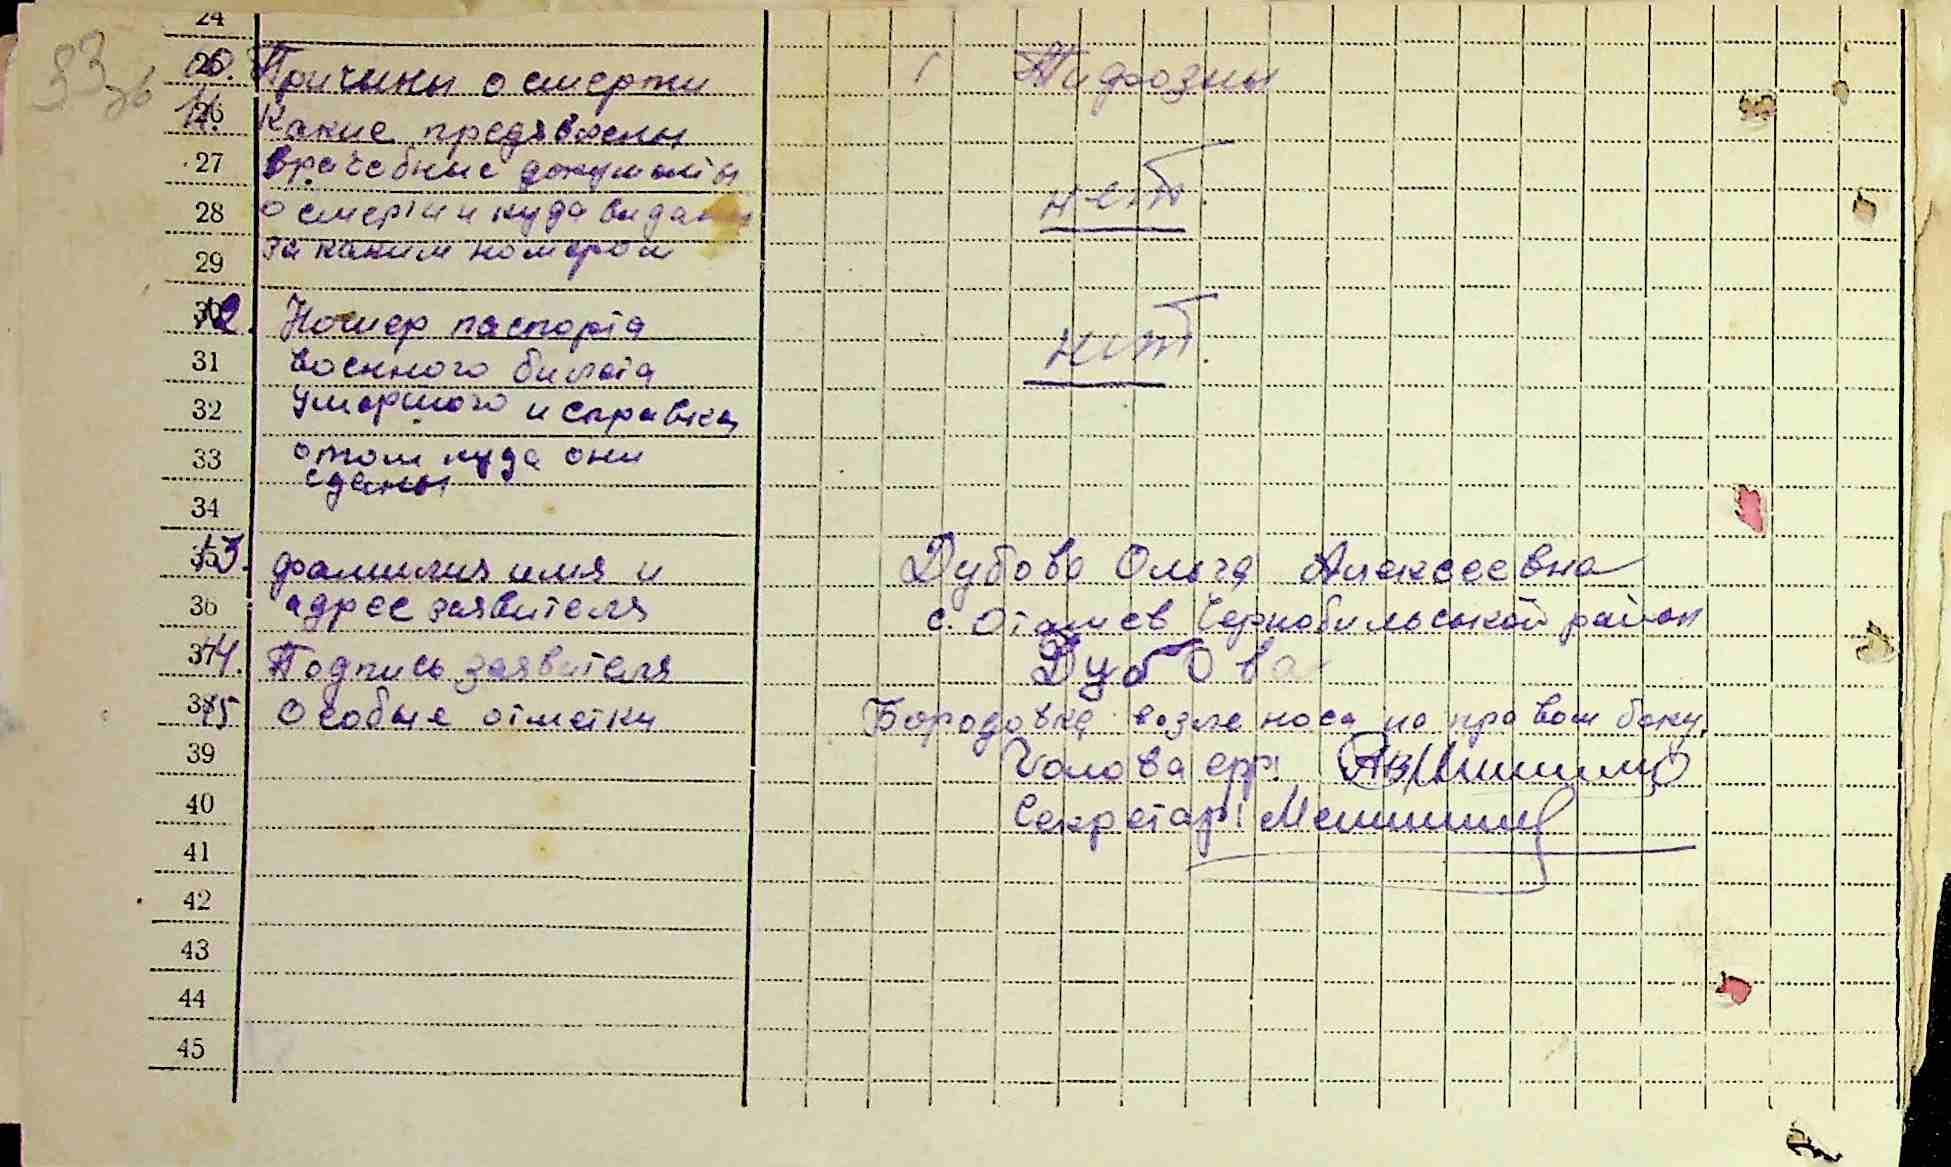 24
33 зв
10. Причины о смерти Тифозны
11. Какие предявлены
27 врачебные документы
28 о смерти и куда видани нет.
29 за каким номером
12. Номер паспорта
31 военного билета нет.
32 умершого и справка
33 о том куда они
сданы
34
13. фамилия имя и Дубова Ольга Алексеевна
36 адрес заявителя с. Оташев Чернобильськой район
14. Подпись заявителя Дубова
15. Особые отметки Бородовка возле носа на правом боку.
39 Голова
40 Секретар:
41
42
43
44
45